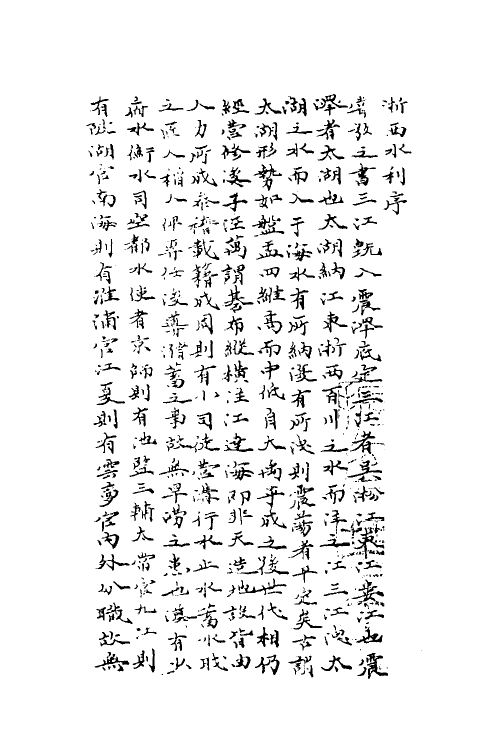 浙西水利序
嘗攷之書三江既入震澤底定三江者吳淞江東江婁江也震
澤者太湖也太湖納江東浙西百川之水而洋之江三江洩太
湖之水而入于海水有所納復有所洩則震蕩者平定矣古謂
太湖形勢如盤盂四維高而中低自大禹平成之後世代相仍
經營修濬子涇萬謂碁布縱橫注江達海即非天造地設皆由
人力所成叅稽載籍成周則有小司徒營溝行水止水蓄水職
之匠人稻人俾專任浚導瀦蓄之事故無旱澇之患也漢有少
府水衡水司空都水使者京師則有池監三輔太常官九江則
有陂湖官南海則有洭浦官江夏則有雲夢官內外分職故無